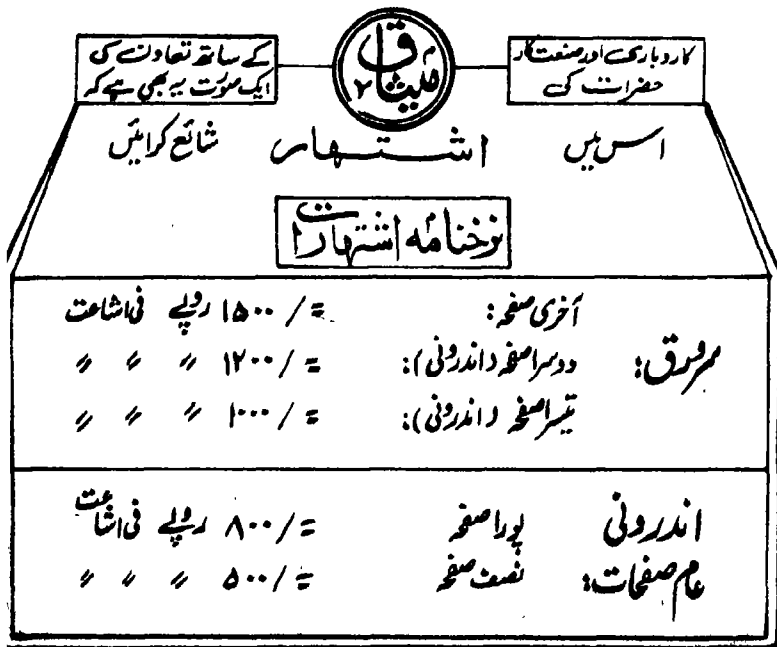 کاروباری اور صنعت کار
حضرات کی
میثاق
کے ساتھ تعاون کی
ایک صورت یہ بھی ہے کہ
اس میں اشتہار شائع کرائیں
نرخنامہ اشتہارات
سرورق:
آخری صفحہ: =/۱۵۰۰ روپے فی اشاعت
دوسرا صفحہ (اندرونی): =/۱۲۰۰ 〃 〃 〃
تیسرا صفحہ (اندرونی): =/۱۰۰۰ 〃 〃 〃
اندرونی
عام صفحات:
پورا صفحہ =/۸۰۰ روپے فی اشاعت
نصف صفحہ =/۵۰۰ 〃 〃 〃